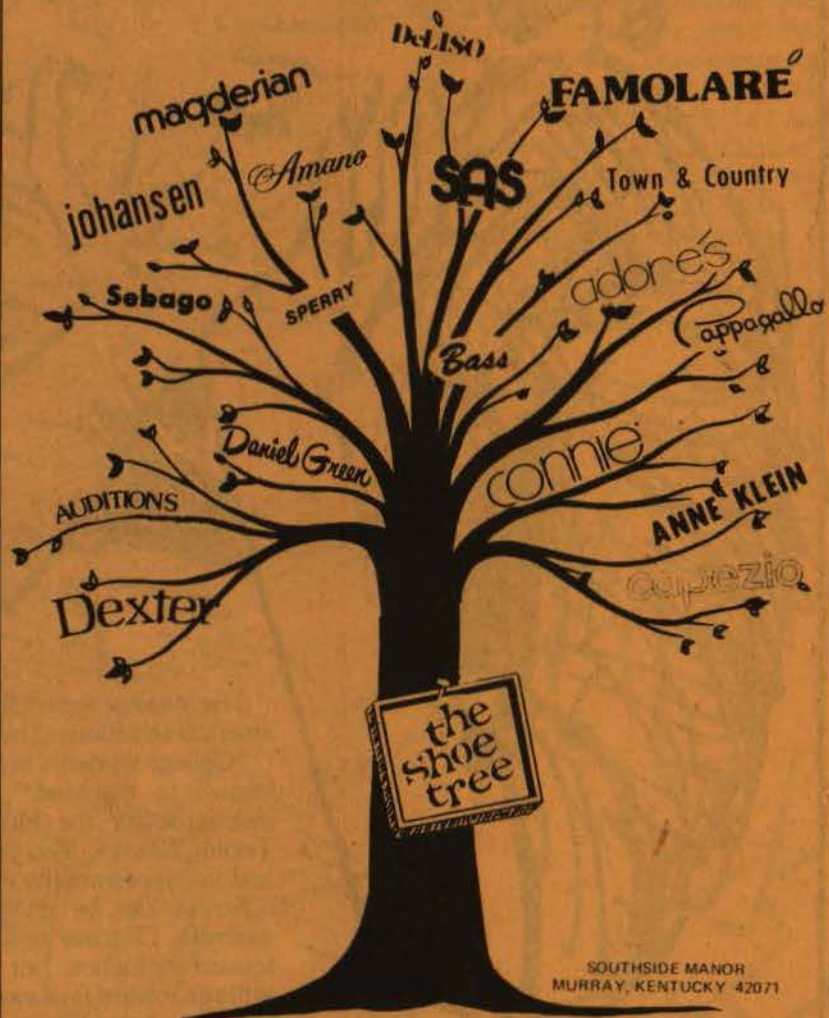 DeLISO
magdesian
FAMOLARE
Amano
SAS
Town & Country
johansen
adorés
Sebago
SPERRY
Pappagallo
Bass
Daniel Green
connie
AUDITIONS
ANNE KLEIN
capezio
Dexter
the
shoe
tree
SOUTHSIDE MANOR
MURRAY, KENTUCKY 42071